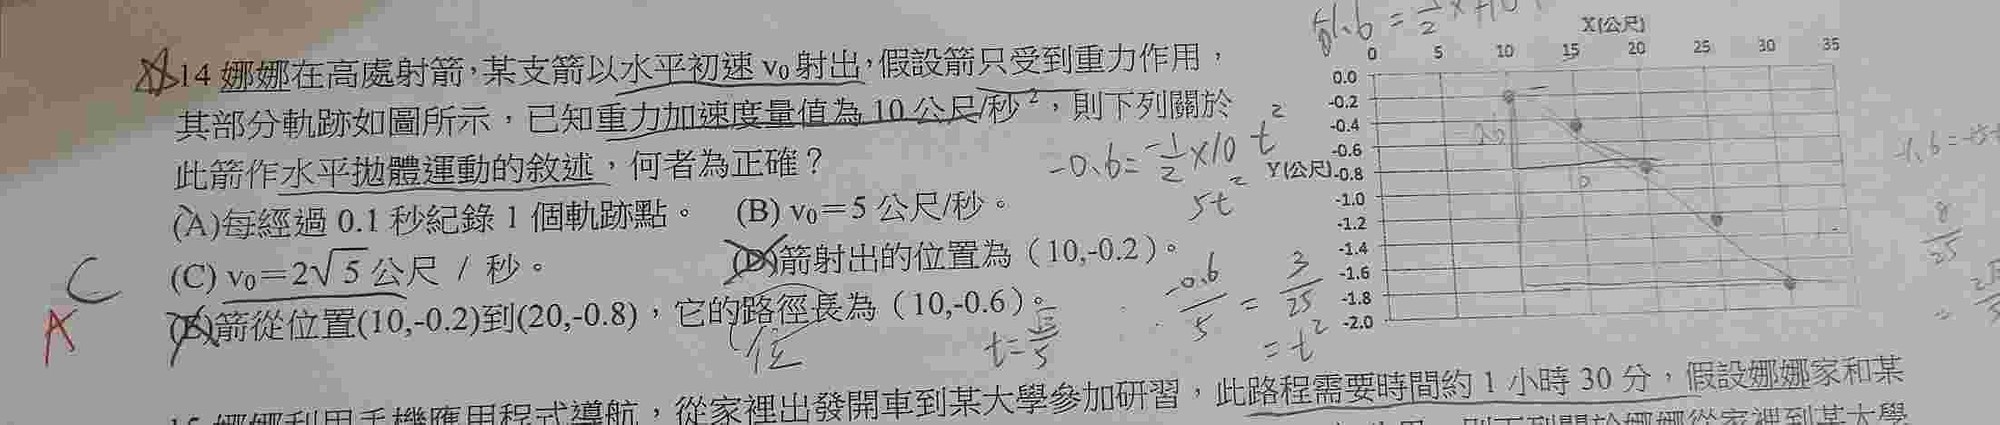 14 娜娜在高處射箭,某支箭以水平初速 v₀ 射出,假設箭只受到重力作用,
其部分軌跡如圖所示,已知重力加速度量值為 10 公尺/秒²,則下列關於
此箭作水平拋體運動的敘述,何者為正確?
(A)每經過 0.1 秒紀錄 1 個軌跡點。 (B) v₀=5 公尺/秒。
(C) v₀=2√5 公尺 / 秒。 (D)箭射出的位置為(10,-0.2)。
(E)箭從位置(10,-0.2)到(20,-0.8),它的路徑長為(10,-0.6)。
C
A
位
-0.6=-1/2×10 t²
5t²
-0.6/5 = 3/25
=t²
X(公尺)
0 5 10 15 20 25 30 35
Y(公尺)
0.0
-0.2
-0.4
-0.6
-0.8
-1.0
-1.2
-1.4
-1.6
-1.8
-2.0
8/25
娜娜利用手機應用程式導航,從家裡出發開車到某大學參加研習,此路程需要時間約 1 小時 30 分,假設娜娜家和某